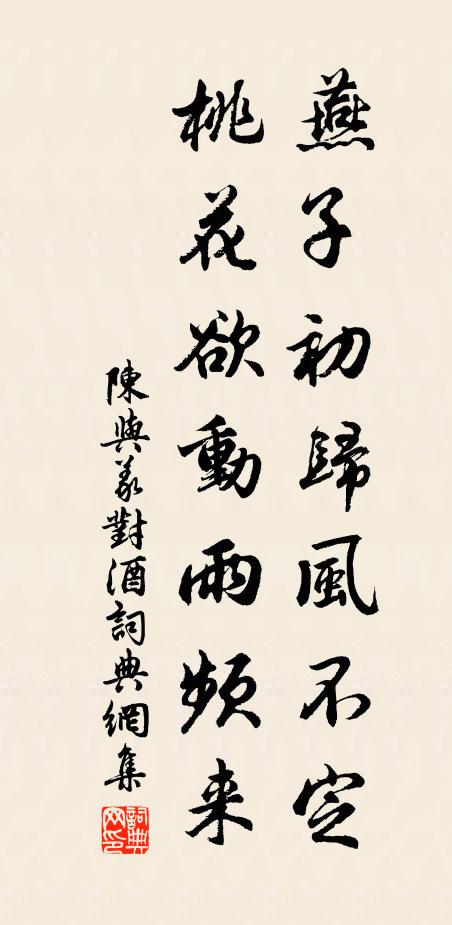 燕子初歸風不定
桃花欲動雨頻来
陳與義對酒詞典網集
詞典網印